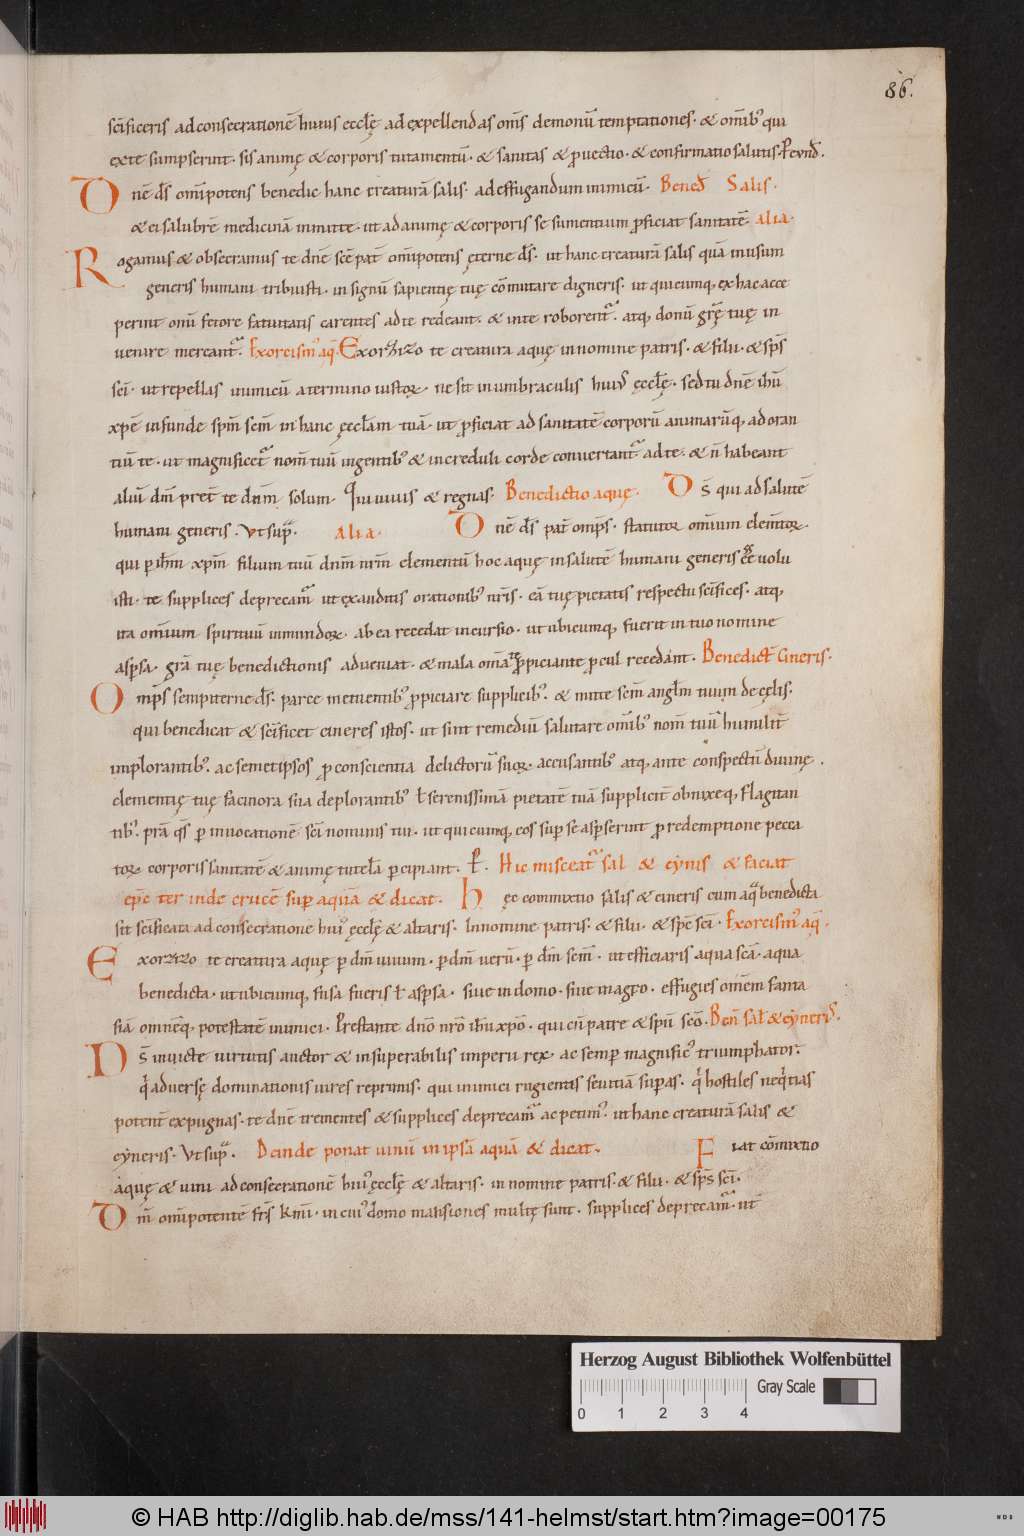 86.
scificeris ad consecrationē huius eccłę ad expellendas om̄s demonū temptationes · & omīb; qui
ex te sumpserint · sis animę & corporis tutamentū · & sanitas & puectio · & confirmatio salutis · P eund̄ .
Dnē ds̄ om̄ipotens benedic hanc creaturā salis · ad effugandum inimicū · Bened̄ Salis ·
& ei salubrē medicinā inmitte · ut ad animę & corporis se sumentium pficiat sanitatē Alia ·
Rogamus & obsecramus te dnē scē pat̄ om̄ipotens ęterne ds̄ · ut hanc creaturā salis quā in usum
generis humani tribuisti · in signū sapientię tuę cōmutare digneris · ut quicumq; ex hac acce
perint omī fetore fatuitatis carentes ad te redeant · & in te roborent · atq; donū grę̄ tuę in
uenire mereant · Exorcism aq̄ · Exorzizo te creatura aquę in nomine patris · & filii · & sps̄
sci · ut repellas inimicū a termino iustor · ne sit in umbraculis hui ęccłę · sed tu dnē ihū
xpē infunde spm̄ scm̄ in hanc ęccłam tuā · ut pficiat ad sanitatē corporū animarūq; adoran
tiū te · ut magnificet nom̄ tuū in gentib; & increduli corde conuertant ad te · & n̄ habeant
aliū dm̄ pret̄ te dnm̄ solum · Qui uiuis & regnas · Benedictio aquę · Ds̄ qui ad salutē
humani generis · Ut sup · Alia · Dnē ds̄ pat̄ omps̄ · statutor omīum elem̄tor ·
qui p ihm̄ xpm̄ filium tuū dnm̄ nrm̄ elementū hoc aquę in salutē humani generis eē uolu
isti · te supplices deprecam ut exauditis orationib; nris̄ · eā tuę pietatis respectu scīfices · atq;
ita omīum spirituū inmundor · ab ea recedat incursio · ut ubicumq; fuerit in tuo nomine
aspsa · grā tuę benedictionis adueniat · & mala omā te ppiciante pcul recedant · Benedict̄ Cineris ·
Omps̄ sempiterne ds̄ · parce metuentib; ppiciare supplicib; · & mitte scm̄ angłm tuum de cęlis ·
qui benedicat & scīficet cineres istos · ut sint remediū salutare omīb; nom̄ tuū humilit̄
implorantib; · ac semetipsos p conscientia delictorū suor · accusantib; atq; ante conspectū diuinę .
clementię tuę facinora sua deplorantib; ł serenissimā pietatē tuā supplicit̄ obnixeq; flagitan
tib; · prā qs̄ p inuocationē sci nominis tui · ut quicumq; eos sup se aspserint p redemptione pecca
tor corporis sanitatē & animę tutelā pcipiant · P · Hic misceat sal & cynis & faciat
epc̄ ter inde crucē sup aquā & dicat · Hęc commixtio salis & cineris cum aq̄ benedicta
sit scīficata ad consecratione hui ęccłę & altaris · In nomine patris · & filii · & spc̄ sci · Exorcism aq̄ ·
Exorzizo te creatura aquę p dm̄ uiuum · p dm̄ uerū · p dm̄ scm̄ · ut efficiaris aqua scā · aqua
benedicta · ut ubicumq; fusa fueris ł aspsa · siue in domo · siue in agro · effugies omēm fanta
siā omnēq; potestatē inimici · Prestante dnō nrō ihū xpō · qui cū patre & spū scō · Ben̄ sal & cyneris ·
Ds̄ inuicte uirtutis auctor & insuperabilis imperii rex · ac semp magnific triumphator ·
q aduersę dominationis uires reprimis · qui inimici rugientis seuitiā supas · q hostiles neqtias
potent expugnas · te dnē trementes & supplices deprecam ac petim · ut hanc creaturā salis &
cyneris · Ut sup · Deinde ponat uinū in ipsā aquā & dicat · Fiat cōmixtio
aquę & uini ad consecrationē hui ęccłę & altaris · in nomine patris · & filii · & sps̄ sci ·
Dm̄ om̄ipotentē frs̄ kmi · in cui domo mansiones multę sunt · supplices deprecam · ut
Herzog August Bibliothek Wolfenbüttel
Gray Scale
0 1 2 3 4
© HAB http://diglib.hab.de/mss/141-helmst/start.htm?image=00175